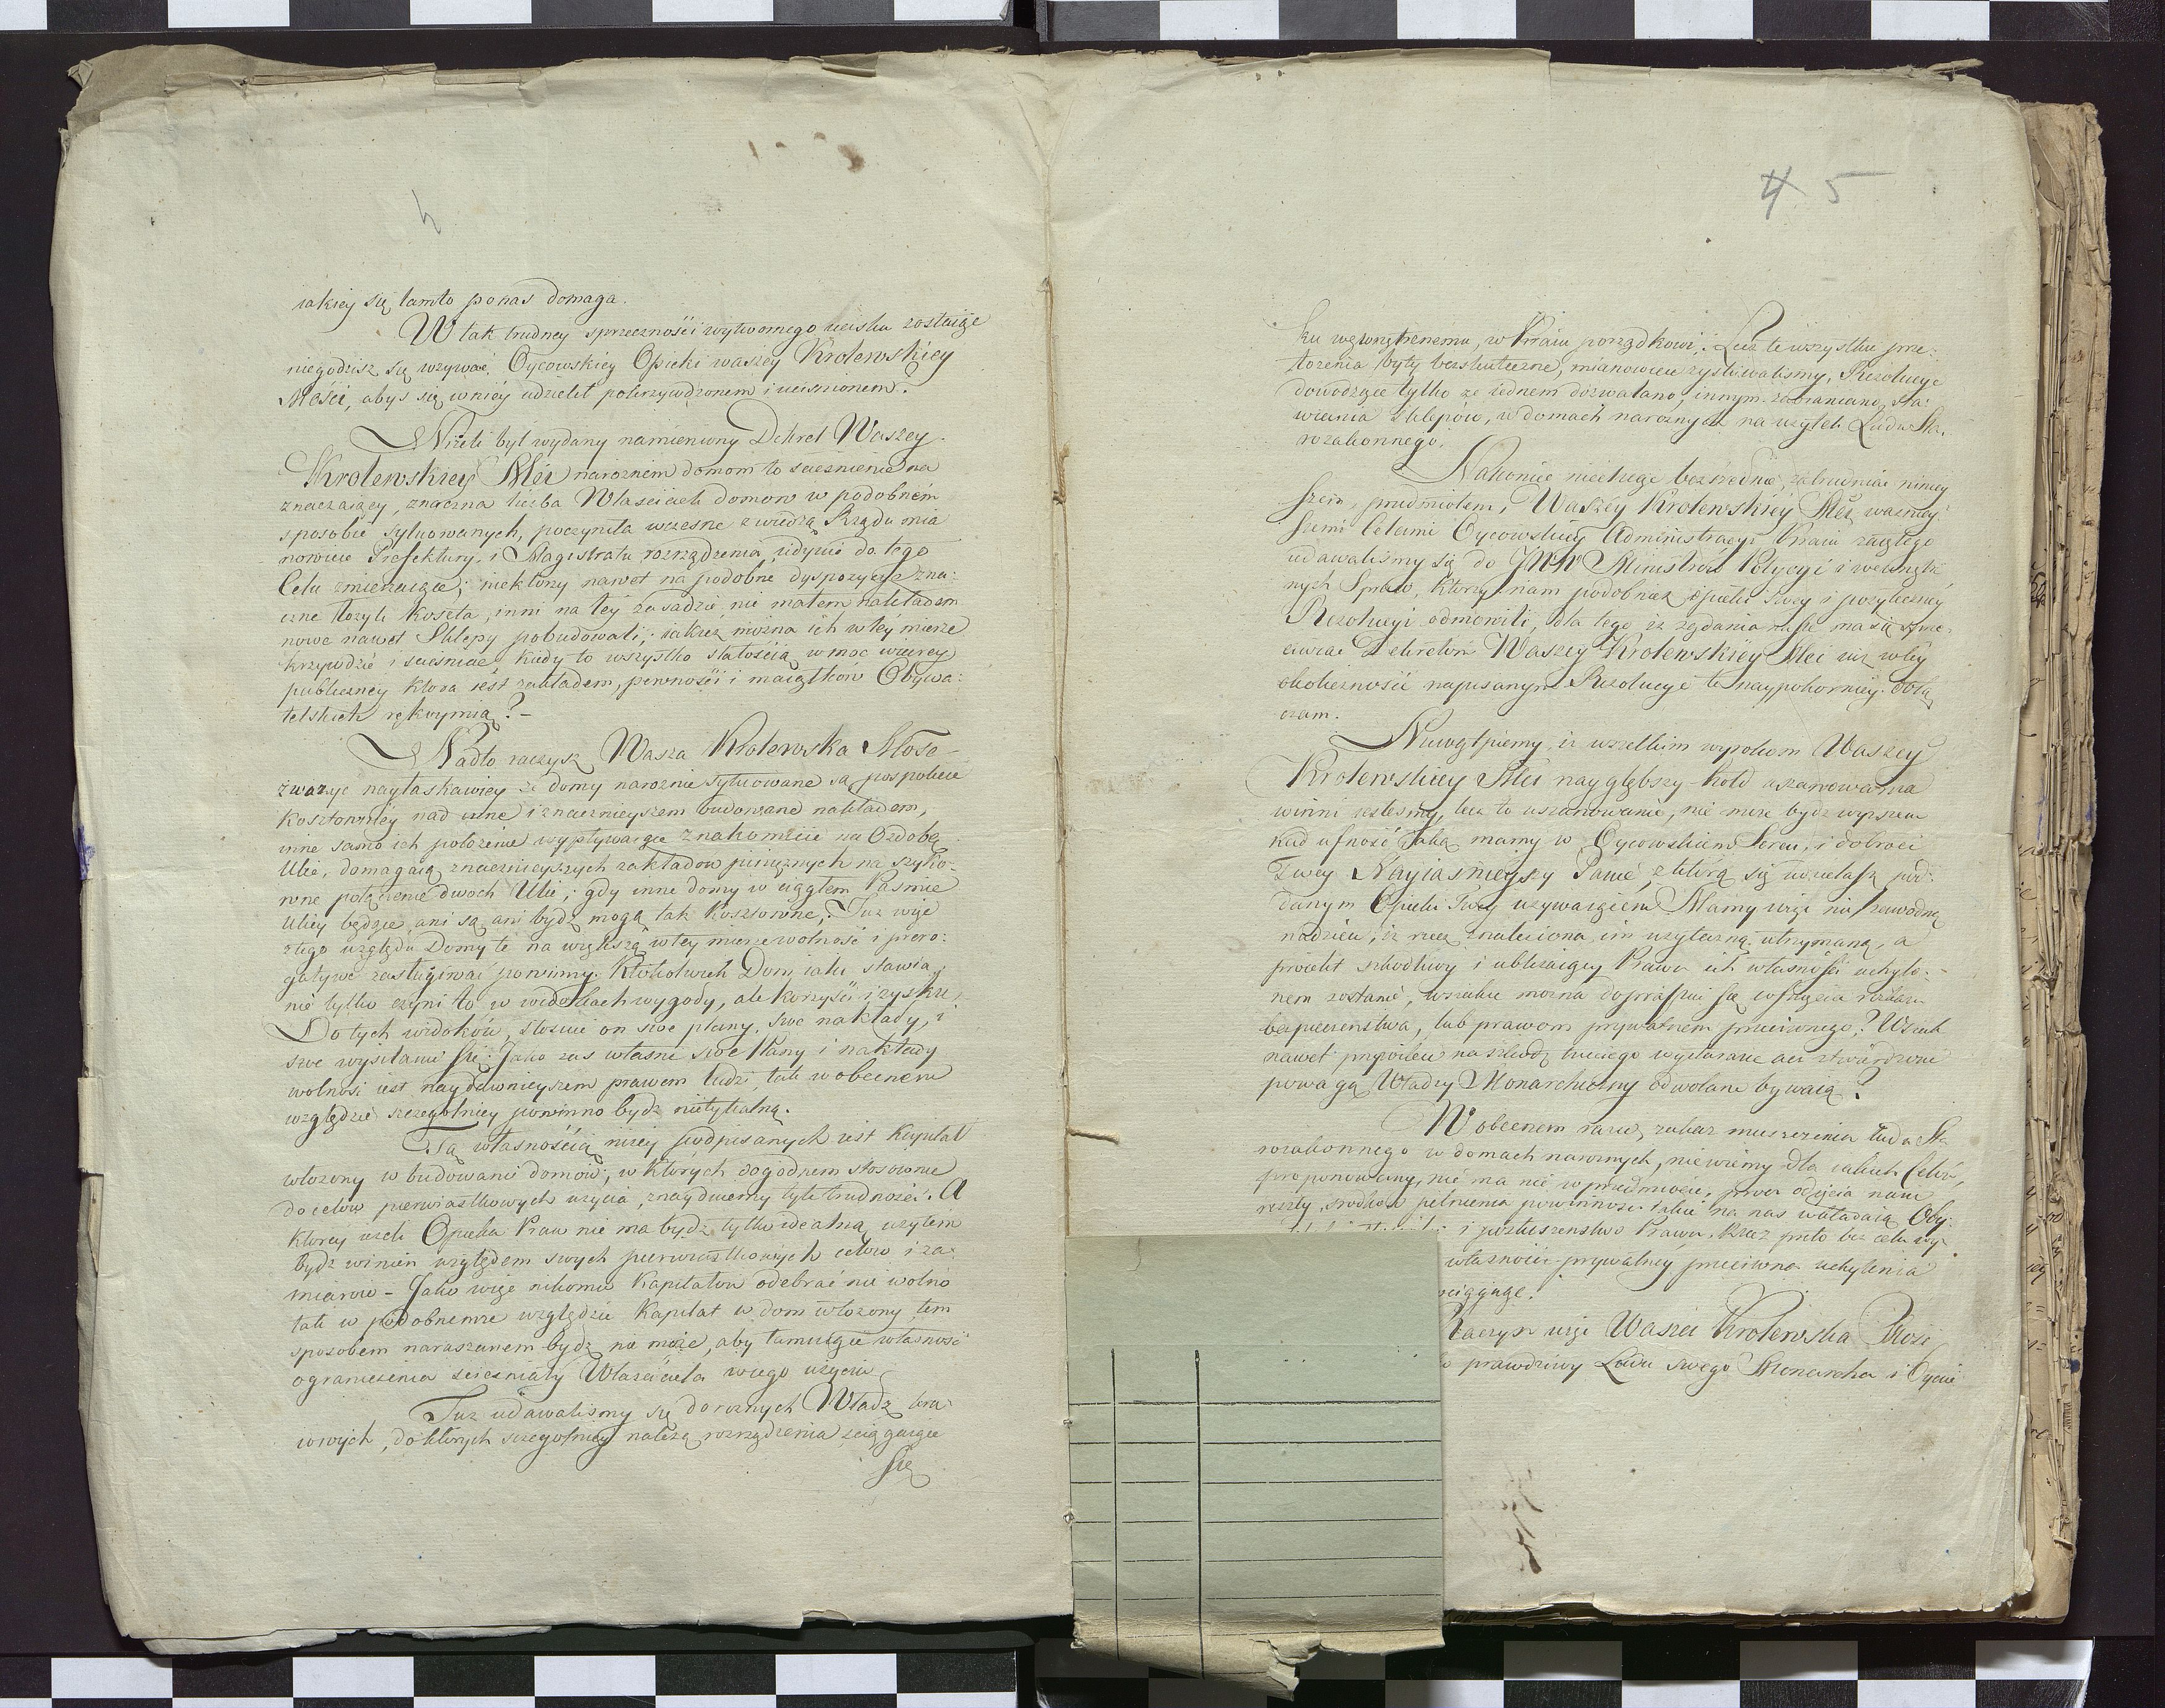 iakiey się tamto ponas domaga.
W tak trudney sprzecznośći wytwornego ucisku zostaiąc
niegodzisz się wzywać Oycowskiey Opieki waszey Krolewskiey
Mości, abyś się wniéy udzielił pokrzywdzonem i ucisnionem.
Nizeli był wydany namieniony Dekret Waszey
Krolewskiey Mci naroznim domom to scieśnienie na
znaczaiący, znaczna liczba Właścicieli domow w podobném
sposobie sytuowanych, poczyniła wczesne z wiedzą Rządu mia
nowicie Prefektury, i Magistratu rozrządzenia, iidynie do tego
Celu zmierzaiące; niektorzy nawet na podobne dyspozycye zna-
czne łozyli koszta, inni na tey zasadzie nie małem nakładem
nowe nawet Sklepy pobudowali; iakież można ich w tey mierze
krzywdzić i scieśniać, kiedy to wszystko stałością w moc wiarey
publiczney ktora iest zakładem, pewnośći i maiątków Obywa-
telskich rękoymią?-
Nadto raczysz Wasza Krolewska Mość
zwazyc nayłaskawiey że domy naroznie sytuowane są pospolicie
kosztowniey nad inne i znacznieyszem budowane nakładem,
inne samo ich połozenie wypływaiące znakomicie na Ozdobę
Ulic, domagaią znacznieyszych zakładow pieniężnych na szyko-
wne połączenie dwoch Ulic; gdy inne domy w ciągłem Pasmie
Ulicy będące, ani są ani bydź mogą tak kosztowne. Juz więc
ztego względu Domy te na większą w tey mierze wolność i prero-
gatywe zasługiwać powinny. Ktokolwiek Dom iaki stawia,
nie tylko czyni to w widokach wygody, ale korzyśći i zysku,
Do tych widoków, stosuie on swe plany, swe nakłady, i
swe wysilanie się: Jako zas własne swe Plany i nakłady
wolnosi iest naydawnieyszem prawem ludzi, tak w obecnem
względzie szczegolniey powinno bydz nietykalną.
Tą własnością niżey podpisanych iest Kapitał
włozony w budowanie domów, w których dogodnem stosownie
do celów pierwiastkowych uzycia, znayduiemy tyle trudności. A
ktorey ieśli Opieka Praw nie ma bydz tylko idealną, uzytem
bydz winien względem swych pierwiastkowych celow i za-
miarow - Jako więc nikomu Kapitałow odebrać nie wolno
tak w podobnemze względzie Kapitał w dom włozony tem
sposobem naruszanem bydz nie może, aby tamuiące własność
ograniczenia scieśniały Właściciela w iego uzyciu
Juz udawaliśmy się do roznych Władz kra
iowych, do ktorych szczegolniey należą rozrządzenia ściągaiące
się
4 5
ku wewnętrznemu, w Kraiu porządkowi; Lecz te wszystkie prze-
łozenia były bezskuteczne, mianowicie zyskiwaliśmy, Rezolucye
dowodzące tylko ze iednem dozwalano, innym zabraniano sta-
wiania Sklepów, w domach naroznych na uzytek Ludu Sta-
rozakonnego.
Nakoniec niechcąc bezśrednie zatrudniac niniey
szem przedmiotem, Waszey Krolewskiéy Mci waznieÿ
szemi Celami Oycowskiey Administracyi Kraiu zaiętego
udawaliśmy się do JWW Ministrów Policyi i wewnętrz
nych Spraw, Którzy nam podobnież opieki swey i pozyteczney
Rezolucyi odmowili, dla tego iz ządania nasze ma się sprze-
ciwiac Dekretóm Waszey Krolewskiey Mci iuz w tey
okoliczności napisanym. Rezolucye te naypokorniey dołą
czam.
Niewątpiemy, iz wszelkim wyrokom Waszey
Krolewskiey Mci naygłębszy hołd uszanowania
winni iesteśmy, lecz to uszanowanie, nie moze bydz wyzszem
nad ufność iaką mamy w Oycowskiem Sercu, i dobroci
Twey Nayiaśnieyszy Panie, z którą się udzielasz pod-
danym Opieki Twey uzywaiącem. Mamy więc nie zawodną
nadzieię, iz rzecz znaleziona im uzyteczną utrzymaną, a
proiekt szkodliwy i ubliżaiący Prawu ich własności uchylo-
nem zostanie, wszakze mozna
bezpieczenstwa, lub prawom prywatnem przeciwnego? Wszak
nawet przywileie na szkodę trzeciego wyiednane acz stwierdzone
powagą Władzy Monarchiczney odwołane bywaią?
W obecnem razie, zakaz mieszczenia ludu Sta
rozakonnego w domach naroznych, niewiemy dla iakich Celów
proponowany, nie ma nic w przedmiocie, procz odjęcia nam
reszty srodkow pełnienia powinności iakie na nas wkładaią Oby-
i posłuszenstwo Prawu. Rzecz przeto bez celu wy
własności prywatney przeciwna uchylenia
ściągaiące.
Raczysz więc Wasza Krolewska Mość
prawdziwy Ludu swego Monarcha i Oyciec